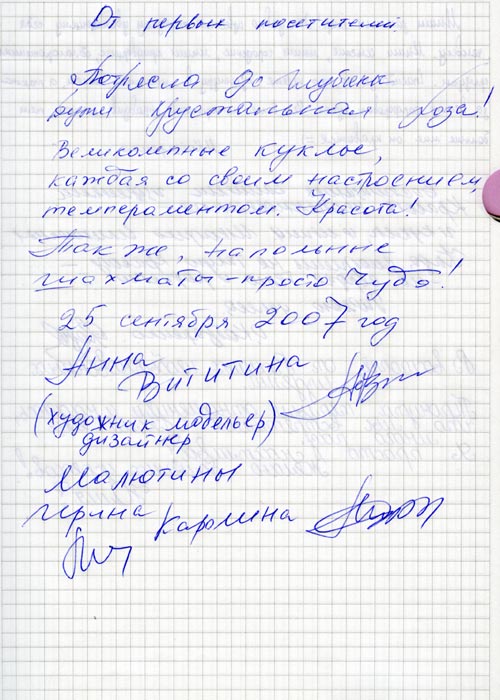 От первых посетителей.
Потрясла до глубины
души хрустальная роза!
Великолепные куклы,
каждая со своим настроением,
темпераментом. Красота!
Также, напольные
шахматы - просто Чудо!
25 сентября 2007 год
Анна
Вититина
(художник модельер)
дизайнер
Малютины
Ирина Каролина